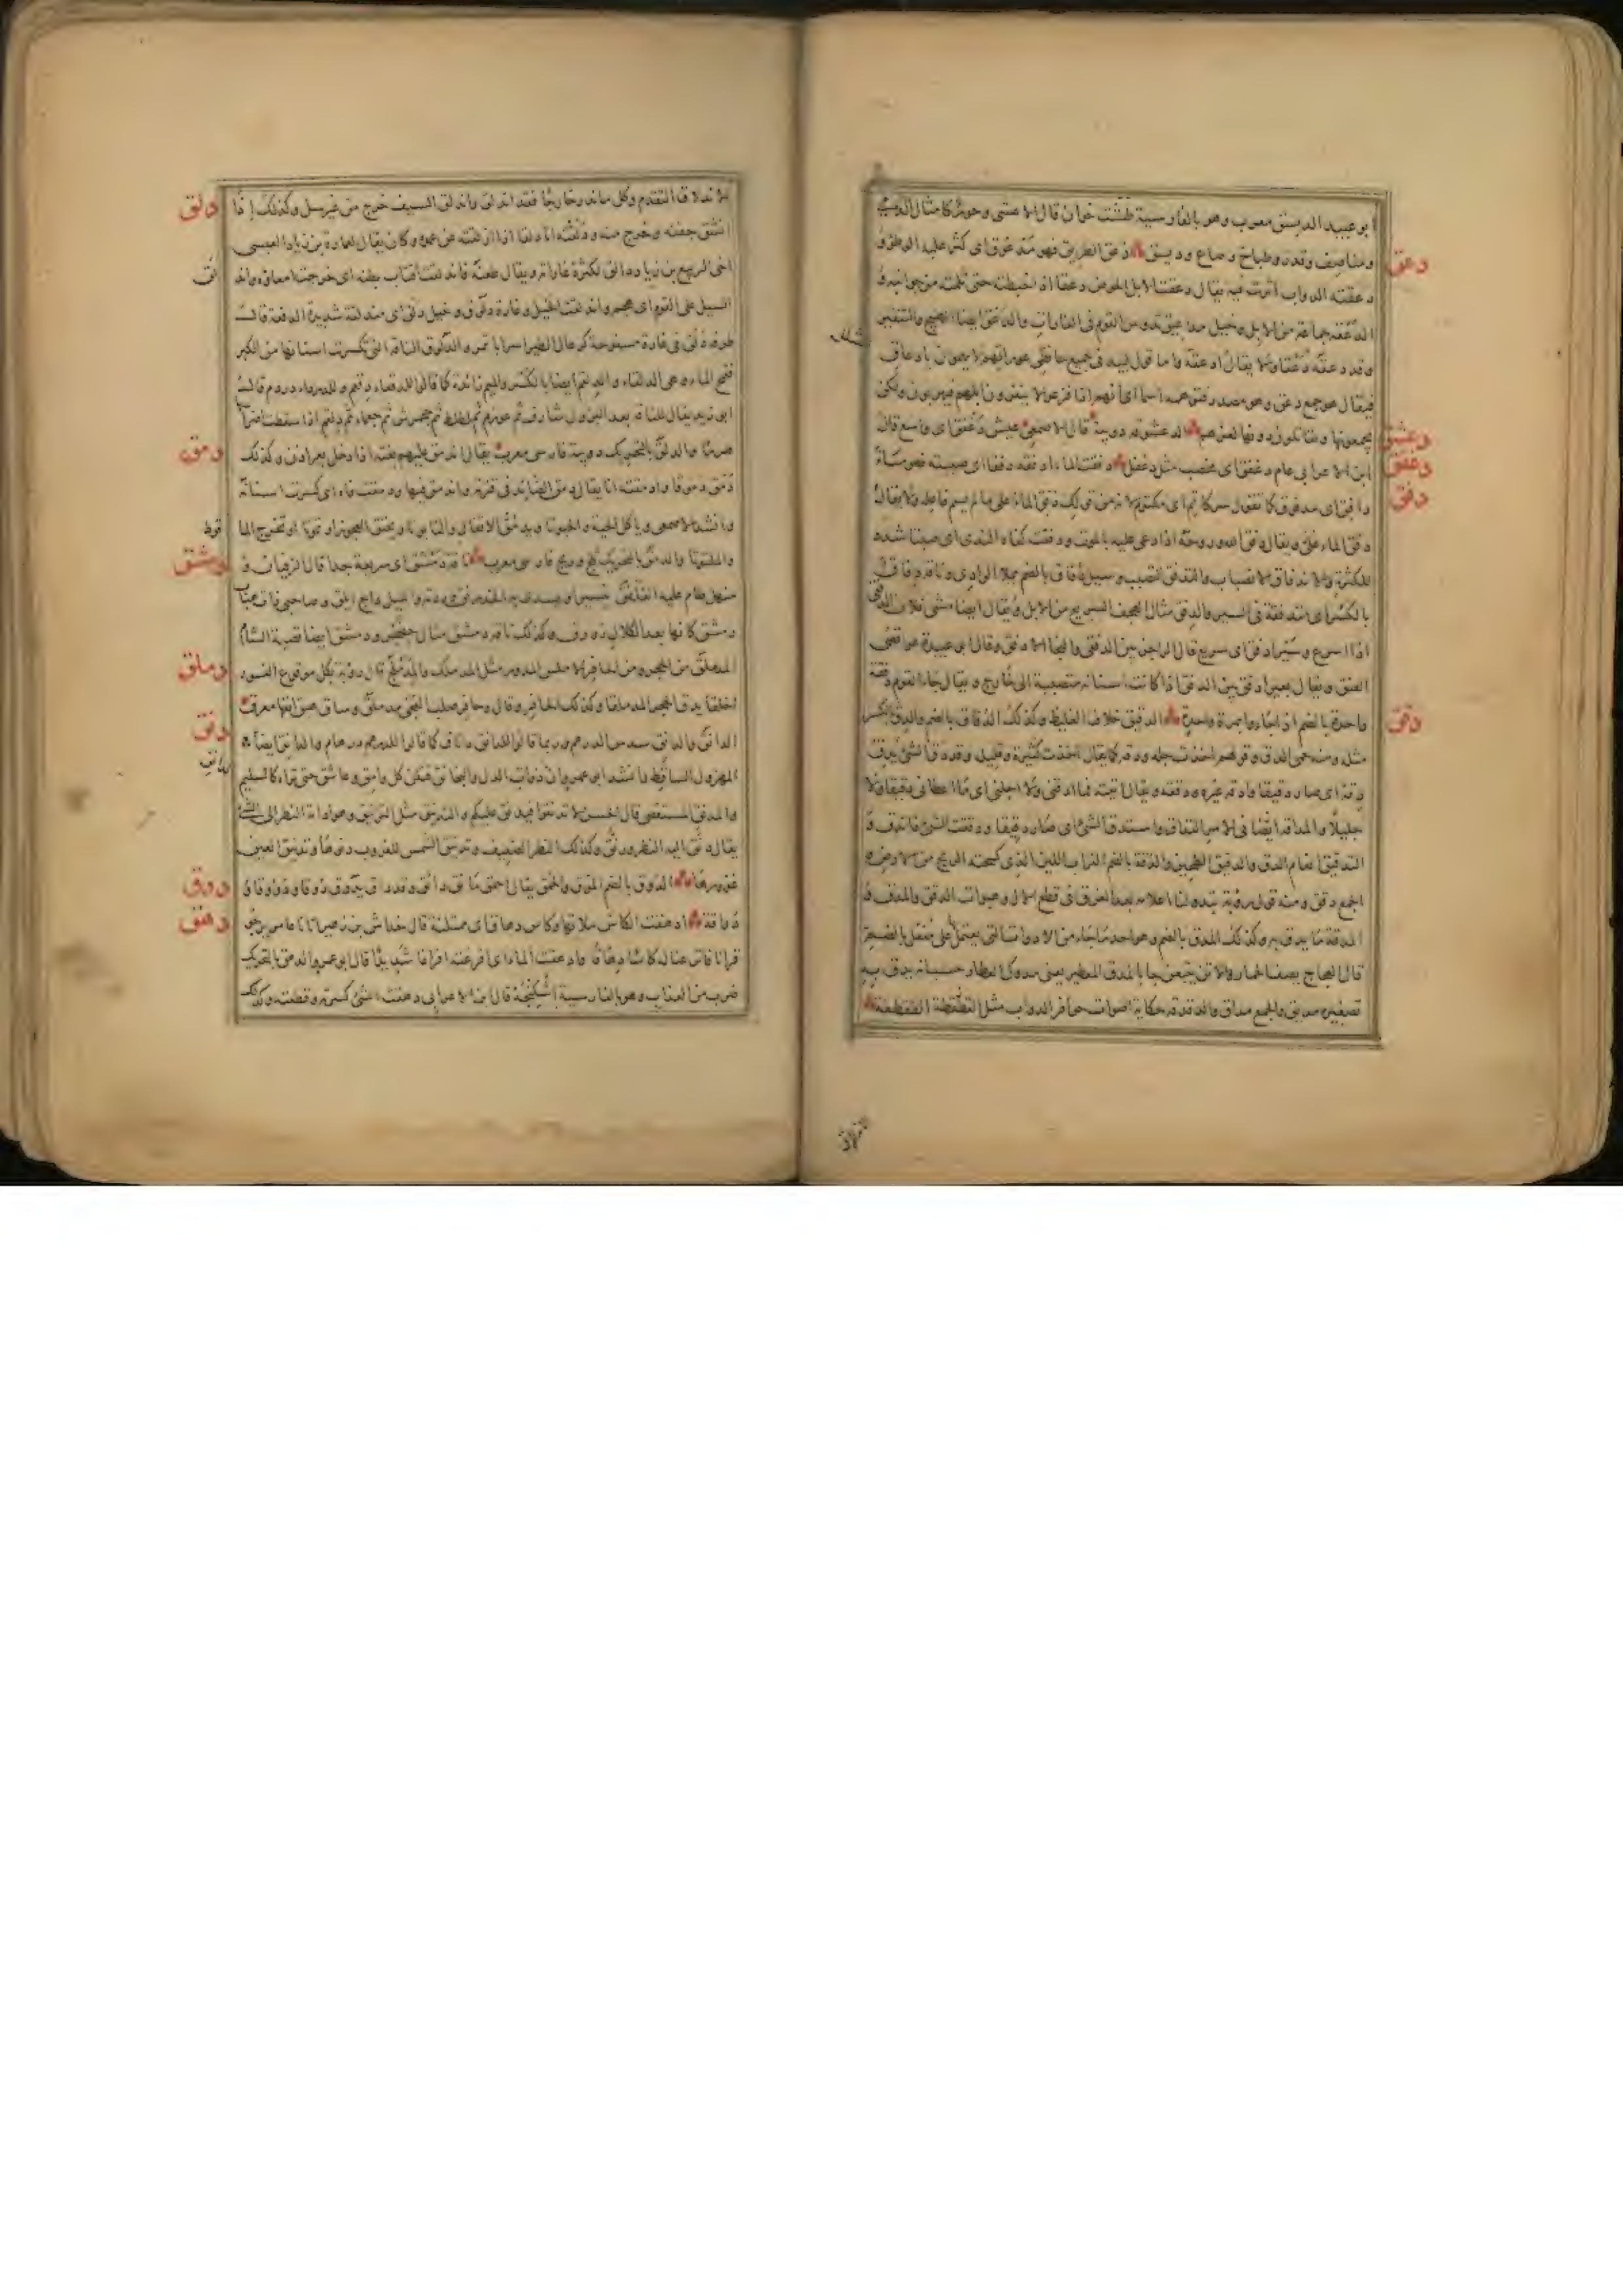 ابو عبيد الديسق معرب وهو بالفارسية طشت خوان قال الاعشى وحور كامثال الدمى
ومناصف وقدر وطباخ وصاع وديسق دعق الطريق فهو مدعوق اى كثر عليه الوطؤ و
دعقته الدواب اثرت فيه يقال دعقت الابل الحوض دعقا اذا خبطته حتى ثلمته من جوانبه و
الدعقة جماعة من الابل وخيل مداعيق تدوس القوم فى الغارات والدعق ايضا
وقد دعقه دعقا ولا يقال ادعقه واما قول لبيد فى جميع حافظى عوراتهم لا يهمون بادعاق
فيقال هو جمع دعق وهو مصدر فتوهمه اسما اى انهم اذا فزعوا لا ينفرون ابلهم ولكن
يجمعونها ويقاتلون دونها لعزهم الدعشوقة دويبة قال الاصمعى عيش دغفق اى واسع قال
ابن الاعرابى عام دغفق اى مخصب مثل دغفل دفقت الماء ادفقه دفقا اى صببته فهو ماء
دافق اى مدفوق كما تقول سر كاتم اى مكتوم لانه من قولك دفق الماء على ما لم يسم فاعله ولا يقال
دفق الماء ويقال دفق الله روحه اذا دعى عليه بالموت ودفقت كفاه الندى اى صبتا شدد
للكثرة والاندفاق الانصباب والتدفق التصبب وسيل دفاق بالضم يملا الوادى وناقة دفاق
بالكسر اى متدفقة فى السير والدفق مثال الهجف السريع من الابل ويقال ايضا مشى فلان الدفقى
اذا اسرع وسير ادفق اى سريع قال الراجز بين الدفقى والنجاء الادفق وقال ابو عبيدة هو اقصى
العنق ويقال بعير ادفق بين الدفق اذا كانت اسنانه منتصبة الى خارج ويقال جاء القوم دفقة
واحدة بالضم اذا جاءوا بمرة واحدة الدقيق خلاف الغليظ وكذلك الدقاق بالضم والدق بالكسر
مثله ومنه حمى الدق وقولهم اخذت جله ودقه كما يقال اخذت كثيره وقليله وقد دق الشئ يدق
دقة اى صار دقيقا وادقه غيره ودققه ويقال اتيته فما ادقنى ولا اجلنى اى ما اعطانى دقيقا ولا
جليلا والمداقة ايضا فى الامر التداق واستدق الشئ اى صار دقيقا ودققت الشئ فاندق و
التدقيق انعام الدق والدقيق الطحين والدقة بالضم التراب اللين الذى كسحته الريح من الارض و
الجمع دقق ومنه قول رؤبة تبدو لنا اعلامه بعد الغرق فى قطع الآل وهبوات الدقق والمدق و
المدقة ما يدق به وكذلك المدق بالضم وهو احد ما جاء من الادوات التى يعتمل على مفعل بالضم
قال العجاج يصف الحمار والاتن يتبعن جابا كالمدق المعطير يعنى مدوك العطار حسبانه يدق به
تصغيره مديق والجمع مداق والدقدقة حكاية اصوات حوافر الدواب مثل الطقطقة
دعق
دعشق
دغفق
دفق
دقق
الاندلاق التقدم وكل ما ندر خارجا فقد اندلق واندلق السيف خرج من غير سل وكذلك اذا
انشق جفنه وخرج منه ودلقته انا دلقا اذا ازلقته من غمده وكان يقال لعمارة بن زياد العبسى
اخى الربيع بن زياد دالق لكثرة غاراته ويقال طعنه فاندلقت اقتاب بطنه اى خرجت امعاؤه واندلق
السيل على القوم اى هجم واندلقت الخيل وغارة دلوق وخيل دلق اى مندلقة شديدة الدفعة قال
طرفة دلق فى غارة مسفوحة كرعال الطير اسرابا تمر والدلوق الناقة التى تكسرت اسنانها من الكبر
فتمج الماء وهى الدلقاء والدلقم ايضا بالكسر والميم زائدة كما قالوا للدقعاء دقعم وللدرداء دردم قال
ابو زيد يقال للناقة بعد البزول شارف ثم عوزم ثم لطلط ثم جحمرش ثم جعماء ثم دلقم اذا سقطت اضراسها
هرما والدلق بالتحريك دويبة فارسى معرب يقال اندمق عليهم بغتة اذا دخل بغير اذن وكذلك
دمق دموقا وادمقته انا يقال دمق الصائد فى قترته واندمق فيها ودمقت فاه اى كسرت اسنانه
والدمق بالتحريك ثلج وريح فارسى معرب ناقة دمشق اى سريعة جدا قال الزفيان و
منهل طام عليه الغلفق ينير او يسدى به الخدرنق وردته والليل داج ابلق وصاحبى ذات هباب
دمشق كانها بعد الكلال زورق وكذلك ناقة دمشق مثال حضجر ودمشق ايضا قصبة الشام
المدملق من الحجر ومن الحافر الاملس المدور مثل المدملك والمدملج قال رؤبة بكل موقوع النسور
اخلقا يدق الحجر المدملقا وكذلك الحافر
الدانق والدانق سدس الدرهم وربما قالوا للدانق داناق كما قالوا للدرهم درهام والدانق ايضا
المهزول الساقط وانشد ابو عمرو ان ذوات الدل والبخانق قتلن كل وامق وعاشق حتى تراه كالسليم
والمدنق المستقصى قال الحسن لا تدنقوا فيدنق عليكم والتدنيق مثل الترنيق وهو ادامة النظر الى الشئ
يقال دنق اليه النظر ورنق وكذلك النظر الضعيف وتدنيق الشمس للغروب دنوها وتدنيق العين
غؤورها الدوق بالضم الموق والحمق يقال احمق مائق دائق وقد داق يدوق دوقا ودؤوقا و
دواقة ادهقت الكاس ملاتها وكاس دهاق اى ممتلئة قال خداش بن زهير اتانا عامر يرجو
قرانا فاترعنا له كاسا دهاقا وادهقت الماء اى افرغته افراغا شديدا قال ابو عمرو الدهق بالتحريك
ضرب من العذاب وهو بالفارسية اشكنجه قال ابن الاعرابى دهقت الشئ كسرته وقطعته وكذلك
دلق
دمق
دمشق
دملق
دنق
الدانق
دوق
دهق